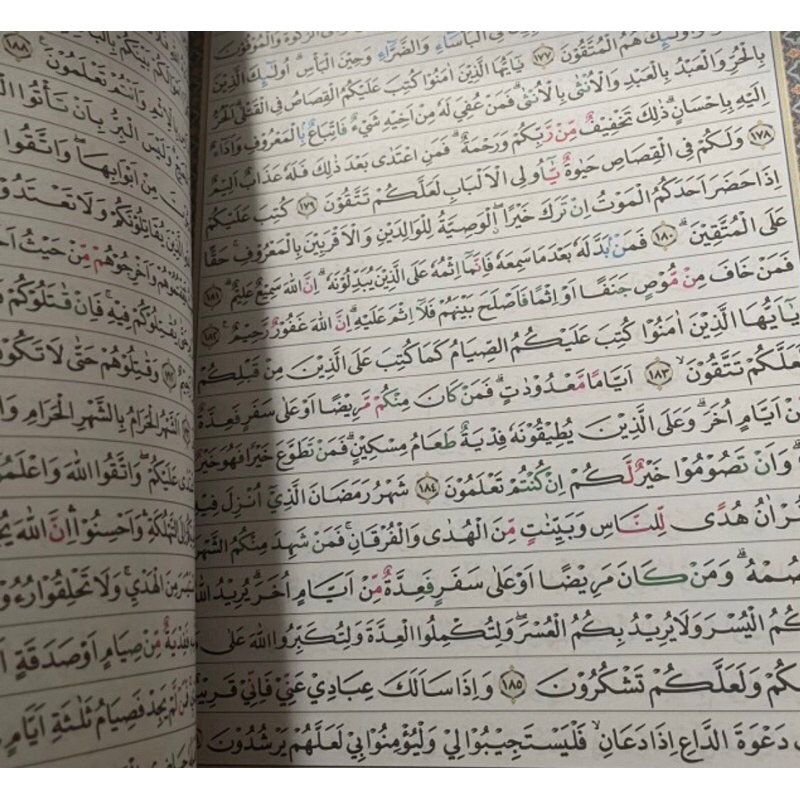 الزَّكٰوةَ وَالْمُوْفُوْنَ
فِى الْبَأْسَاۤءِ وَالضَّرَّاۤءِ وَحِيْنَ الْبَأْسِۗ اُولٰۤىِٕكَ الَّذِيْنَ
وَاُولٰۤىِٕكَ هُمُ الْمُتَّقُوْنَ ١٧٧ يٰٓاَيُّهَا الَّذِيْنَ اٰمَنُوْا كُتِبَ عَلَيْكُمُ الْقِصَاصُ فِى الْقَتْلٰىۗ اَلْحُرُّ
بِالْحُرِّ وَالْعَبْدُ بِالْعَبْدِ وَالْاُنْثٰى بِالْاُنْثٰىۗ فَمَنْ عُفِيَ لَهٗ مِنْ اَخِيْهِ شَيْءٌ فَاتِّبَاعٌۢ بِالْمَعْرُوْفِ وَاَدَاۤءٌ
اِلَيْهِ بِاِحْسَانٍۗ ذٰلِكَ تَخْفِيْفٌ مِّنْ رَّبِّكُمْ وَرَحْمَةٌۗ فَمَنِ اعْتَدٰى بَعْدَ ذٰلِكَ فَلَهٗ عَذَابٌ اَلِيْمٌ
١٧٨ وَلَكُمْ فِى الْقِصَاصِ حَيٰوةٌ يّٰٓاُولِى الْاَلْبَابِ لَعَلَّكُمْ تَتَّقُوْنَ ١٧٩ كُتِبَ عَلَيْكُمْ
اِذَا حَضَرَ اَحَدَكُمُ الْمَوْتُ اِنْ تَرَكَ خَيْرًاۖ ۨالْوَصِيَّةُ لِلْوَالِدَيْنِ وَالْاَقْرَبِيْنَ بِالْمَعْرُوْفِۚ حَقًّا
عَلَى الْمُتَّقِيْنَۗ ١٨٠ فَمَنْۢ بَدَّلَهٗ بَعْدَمَا سَمِعَهٗ فَاِنَّمَآ اِثْمُهٗ عَلَى الَّذِيْنَ يُبَدِّلُوْنَهٗۗ اِنَّ اللّٰهَ سَمِيْعٌ عَلِيْمٌۗ ١٨١
فَمَنْ خَافَ مِنْ مُّوْصٍ جَنَفًا اَوْ اِثْمًا فَاَصْلَحَ بَيْنَهُمْ فَلَآ اِثْمَ عَلَيْهِۗ اِنَّ اللّٰهَ غَفُوْرٌ رَّحِيْمٌ ١٨٢
يٰٓاَيُّهَا الَّذِيْنَ اٰمَنُوْا كُتِبَ عَلَيْكُمُ الصِّيَامُ كَمَا كُتِبَ عَلَى الَّذِيْنَ مِنْ قَبْلِكُمْ
لَعَلَّكُمْ تَتَّقُوْنَۙ ١٨٣ اَيَّامًا مَّعْدُوْدٰتٍۗ فَمَنْ كَانَ مِنْكُمْ مَّرِيْضًا اَوْ عَلٰى سَفَرٍ فَعِدَّةٌ
مِّنْ اَيَّامٍ اُخَرَۗ وَعَلَى الَّذِيْنَ يُطِيْقُوْنَهٗ فِدْيَةٌ طَعَامُ مِسْكِيْنٍۗ فَمَنْ تَطَوَّعَ خَيْرًا فَهُوَ خَيْرٌ
وَاَنْ تَصُوْمُوْا خَيْرٌ لَّكُمْ اِنْ كُنْتُمْ تَعْلَمُوْنَ ١٨٤ شَهْرُ رَمَضَانَ الَّذِيْٓ اُنْزِلَ فِيْهِ
الْقُرْاٰنُ هُدًى لِّلنَّاسِ وَبَيِّنٰتٍ مِّنَ الْهُدٰى وَالْفُرْقَانِۚ فَمَنْ شَهِدَ مِنْكُمُ الشَّهْرَ
فَلْيَصُمْهُۗ وَمَنْ كَانَ مَرِيْضًا اَوْ عَلٰى سَفَرٍ فَعِدَّةٌ مِّنْ اَيَّامٍ اُخَرَۗ يُرِيْدُ اللّٰهُ
بِكُمُ الْيُسْرَ وَلَا يُرِيْدُ بِكُمُ الْعُسْرَۖ وَلِتُكْمِلُوا الْعِدَّةَ وَلِتُكَبِّرُوا اللّٰهَ عَلٰى
هَدٰىكُمْ وَلَعَلَّكُمْ تَشْكُرُوْنَ ١٨٥ وَاِذَا سَاَلَكَ عِبَادِيْ عَنِّيْ فَاِنِّيْ قَرِيْبٌ
دَعْوَةَ الدَّاعِ اِذَا دَعَانِۙ فَلْيَسْتَجِيْبُوْا لِيْ وَلْيُؤْمِنُوْا بِيْ لَعَلَّهُمْ يَرْشُدُوْنَ
اَمْوَالَكُمْ بَيْنَكُمْ بِالْبَاطِلِ
بِالْاِثْمِ وَاَنْتُمْ تَعْلَمُوْنَ ١٨٨
وَلَيْسَ الْبِرُّ بِاَنْ تَأْتُوا
مِنْ اَبْوَابِهَاۖ وَاتَّقُوا
الَّذِيْنَ يُقَاتِلُوْنَكُمْ وَلَا تَعْتَدُوْا
وَاَخْرِجُوْهُمْ مِّنْ حَيْثُ
يُقٰتِلُوْكُمْ فِيْهِۚ فَاِنْ قٰتَلُوْكُمْ
وَقٰتِلُوْهُمْ حَتّٰى لَا تَكُوْنَ
اَلشَّهْرُ الْحَرَامُ بِالشَّهْرِ الْحَرَامِ
عَلَيْكُمْۖ وَاتَّقُوا اللّٰهَ وَاعْلَمُوْٓا
اِلَى التَّهْلُكَةِۛ وَاَحْسِنُوْاۛ اِنَّ اللّٰهَ
مِنَ الْهَدْيِۚ وَلَا تَحْلِقُوْا رُءُوْ
فَفِدْيَةٌ مِّنْ صِيَامٍ اَوْ صَدَقَةٍ
لَّمْ يَجِدْ فَصِيَامُ ثَلٰثَةِ اَيَّامٍ